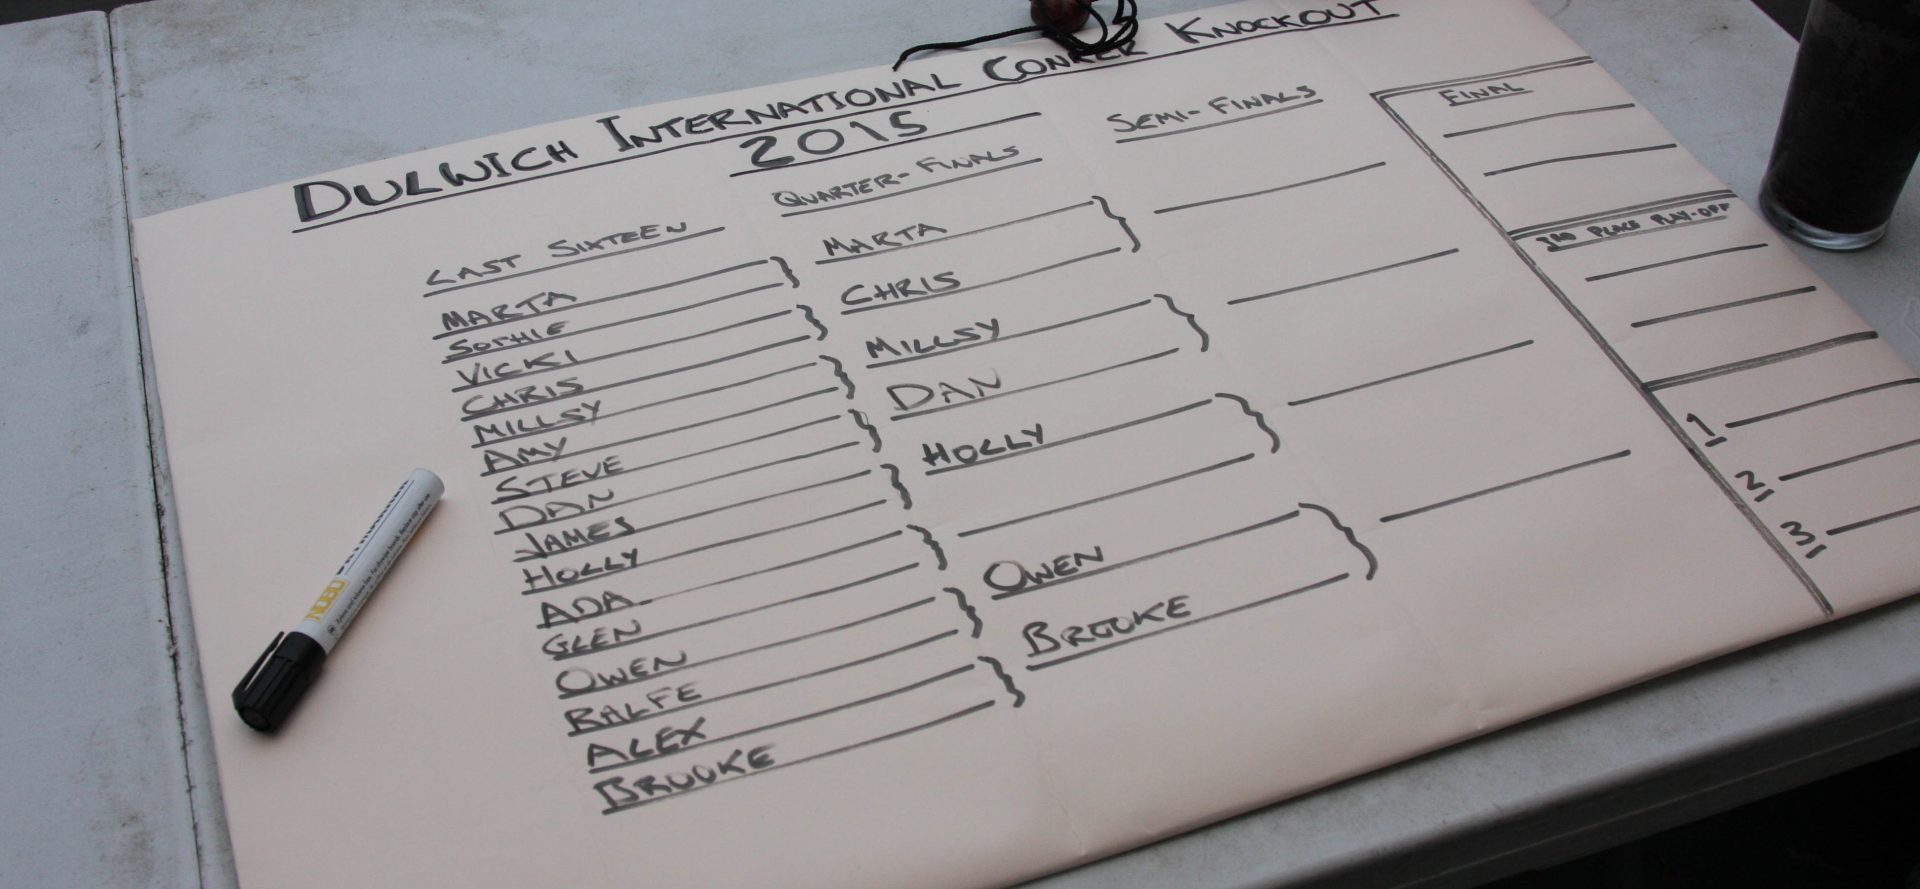 DULWICH INTERNATIONAL CONKER KNOCKOUT
2015
LAST SIXTEEN
MARTA
SOPHIE
VICKI
CHRIS
MILLSY
AMY
STEVE
DAN
JAMES
HOLLY
ADA
GLEN
OWEN
RALFE
ALEX
BROOKE
QUARTER-FINALS
MARTA
CHRIS
MILLSY
DAN
HOLLY
OWEN
BROOKE
SEMI-FINALS
FINAL
3RD PLACE PLAY-OFF
1
2
3
NOBO